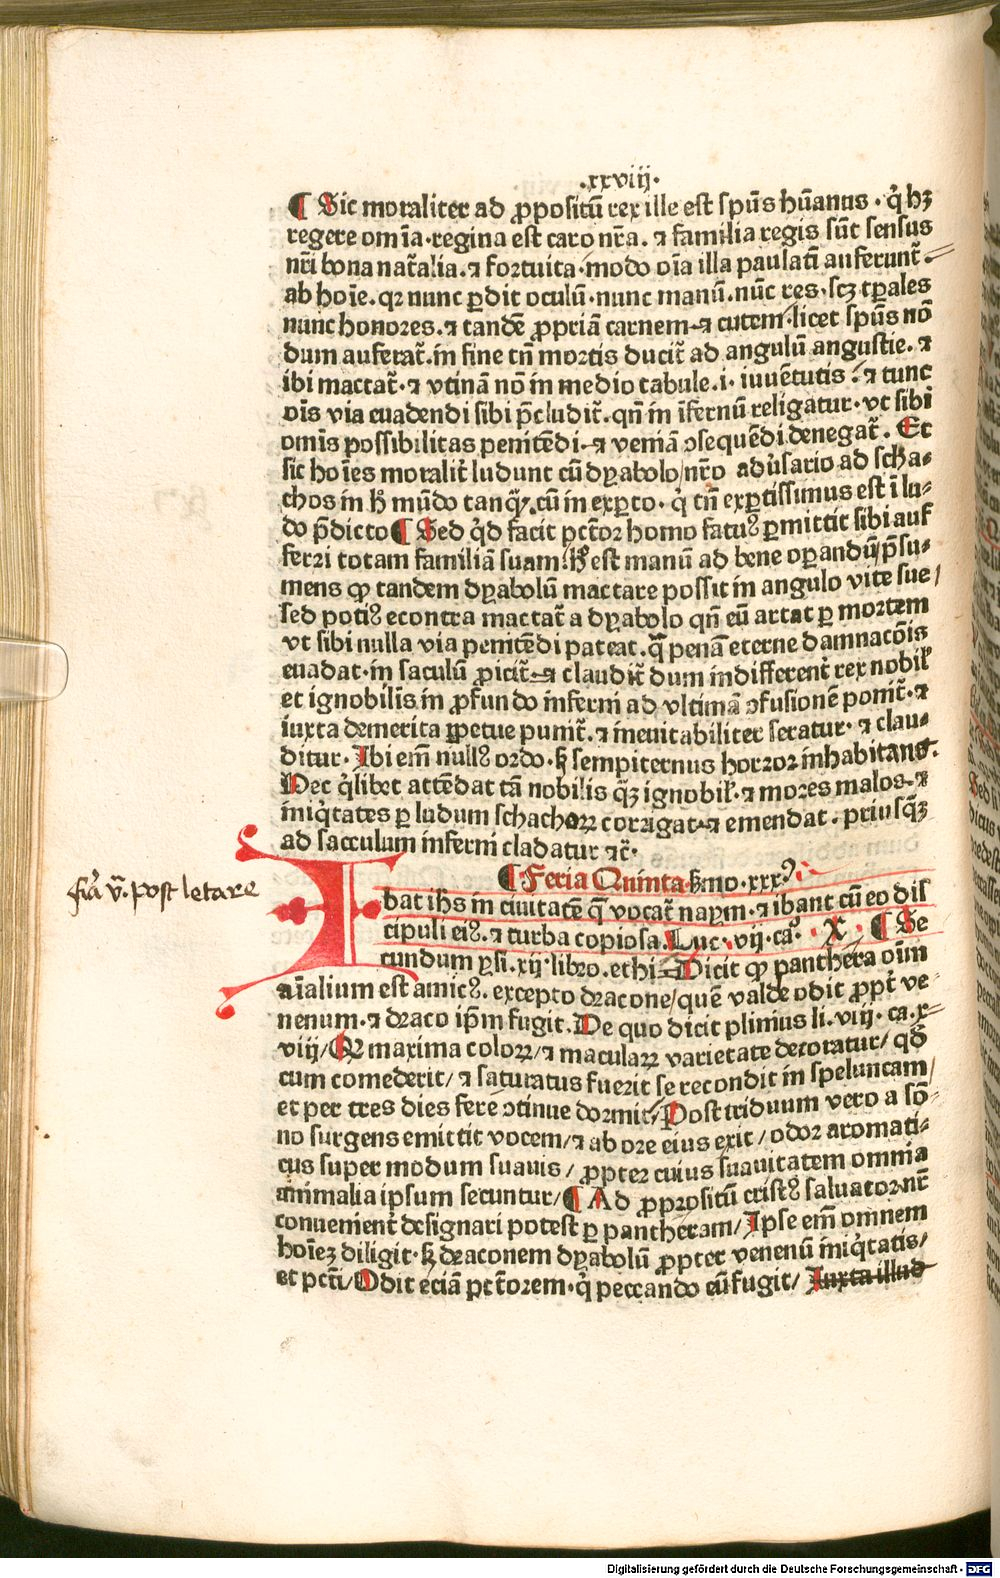 .xxviij.
¶ Sic moraliter ad ꝓpositū rex ille est spūs hūanus . q̇ hꝫ
regere om̄ia . regina est caro nr̄a . ⁊ familia regis sūt sensus
nr̄i bona nat̄alia . ⁊ fortuita . modo oīa illa paulati auferunt̄ . =
ab hoīe . qꝛ nunc ꝑdit oculū . nunc manū . nūc res . scꝫ tꝑales
nunc honores . ⁊ tandē ꝓpriā carnem ⁊ cutem . licet spūs nō
dum auferat̄ . in fine tn̄ mortis ducit̄ ad angulū angustie . ⁊
ibi mactat̄ . ⁊ vtinā nō in medio tabule . i . iuuētutis . ⁊ tunc
oīs via euadendi sibi p̄cludit̄ . qn̄ in īfernū religatur . vt sibi
omīs possibilitas penitēdi . ⁊ veniā ↄsequēdi denegat̄ . Et
sic hoīes moralit̄ ludunt cū dyabolo / nr̄o aduˀsario ad scha-
chos in h̄ mūdo tanqꝫ . cū in exꝑto . q̇ tn̄ exꝑtissimus est ī lu-
do p̄dicto ¶ Sed q̇d facit pctōr homo fatuꝰ ꝑmittit sibi auf
ferri totam familiā suam . h̄ est manū ad bene oꝑandū / p̄su-
mens ꝙ tandem dyabolū mactare possit in angulo vite sue /
sed potiꝰ econtra mactat̄ a dyabolo qn̄ eū artat ꝑ mortem
vt sibi nulla via penitēdi pateat . q̄ penā eterne damnacōīs
euadat . in saculū ꝓicit̄ . ⁊ claudit̄ dum indifferent̄ rex nobil̄
et ignobilis in ꝓfundo inferni ad vltimā ↄfusionē ponit̄ . ⁊
iuxta demerita ꝑpetue punit̄ . ⁊ ineuitabiliter seratur . ⁊ clau-
ditur . Ibi em̄ nullꝰ ordo . sꝫ sempiternus horror inhabitans .
Hec q̇libet attēdat tā nobilis qꝫ ignobil̄ . ⁊ mores malos . ⁊
iniq̇tates ꝑ ludum schachoꝝ corrigat . ⁊ emendat . priusqꝫ
ad sacculum inferni cladatur ⁊c̄ .
¶ Feria Quinta . s̄mo . xxx ꝰ
fīa v̄ . post letare
Ibat ih̄s in ciuitatē q̄ vocat̄ naym . ⁊ ibant cū eo dis
cipuli eiꝰ . ⁊ turba copiosa . Luc . vij . ca° . X . ¶ Se
cundum ysi . xij libro . ethi . Dicit ꝙ panthera oīm
aīalium est amicꝰ . excepto dracone / quē valde odit ꝓpt̄ ve-
nenum . ⁊ draco ip̄m fugit . De quo dicit plinius li . viij . ca . x=
viij / Qꝛ maxima coloꝝ / ⁊ maculaꝝ varietate decoratur / qd̄
cum comederit / ⁊ saturatus fuerit se recondit in speluncam /
et per tres dies fere ↄtinue dormit / Post triduum vero a sō-
no surgens emittit vocem / ⁊ ab ore eius exit / odor aromati-
cus super modum suauis / ꝓpter cuius suauitatem omnia
animalia ipsum secuntur / ¶ Ad ꝓprositū cristꝰ saluator nr̄
conuenient̄ designari potest ꝑ pantheram / Ipse em̄ omnem
hoīeꝫ diligit . sꝫ draconem dyabolū ꝓpter venenū iniq̇tatis /
et pct̄i / Odit eciā pctōrem . q̇ peccando eū fugit / Iuxta illud
Digitalisierung gefördert durch die Deutsche Forschungsgemeinschaft - DFG